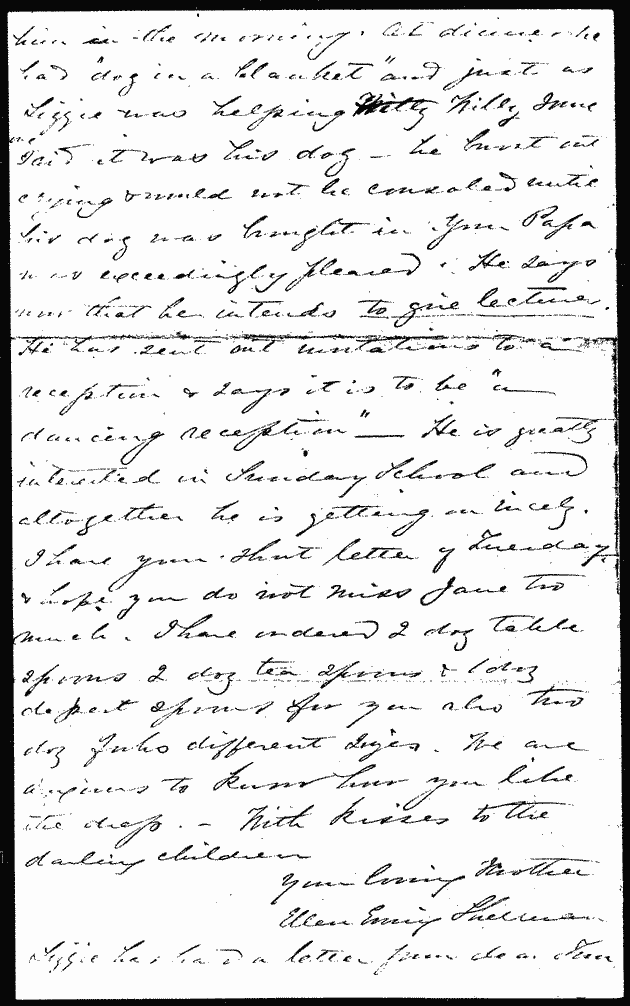 him in the morning. At dinner he
had "dog in a blanket" and just as
Lizzie was helping Willy
said it was his dog — he burst out
crying & would not be consoled until
his dog was brought in. Your Papa
was exceedingly pleased. He says
now that he intends to give lectures.
He has sent out invitations to a
reception & says it is to be "a
dancing reception" — He is greatly
interested in Sunday School and
altogether he is getting on nicely.
I have your short letter of Tuesday
& hope you do not miss Jane too
much. I have ordered 2 doz table
spoons 2 doz tea spoons & 1 doz
desert spoons for you also two
doz forks different sizes. We are
anxious to know how you like
the dress. — With kisses to the
darling children
Your loving Mother
Ellen Ewing Sherman
Lizzie has had a letter from dear Tom